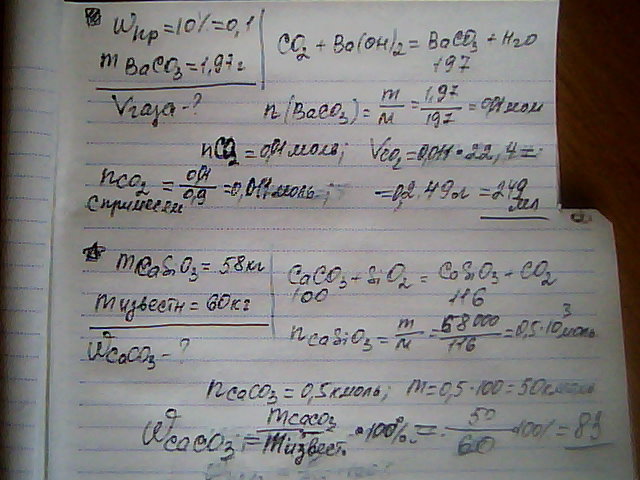 Wпр = 10% = 0,1
m BaCO3 = 1,97 г
Vгаза - ?
CO2 + Ba(OH)2 = BaCO3 + H2O
197
n (BaCO3) = m/M = 1,97/197 = 0,01 моль
nCO2 = 0,01 моль; VCO2 = 0,011 · 22,4 =
nCO2 = 0,01/0,9 = 0,011 моль = 0,249 л = 249 мл
с примесями
m CaSiO3 = 58 кг
m известн = 60 кг
WCaCO3 - ?
CaCO3 + SiO2 = CaSiO3 + CO2
100 116
n CaSiO3 = m/M = 58000/116 = 0,5·10³ моль
n CaCO3 = 0,5 кмоль; m = 0,5·100 = 50 кмоль
WCaCO3 = mCaCO3/m извест. · 100% = 50/60 · 100% = 83